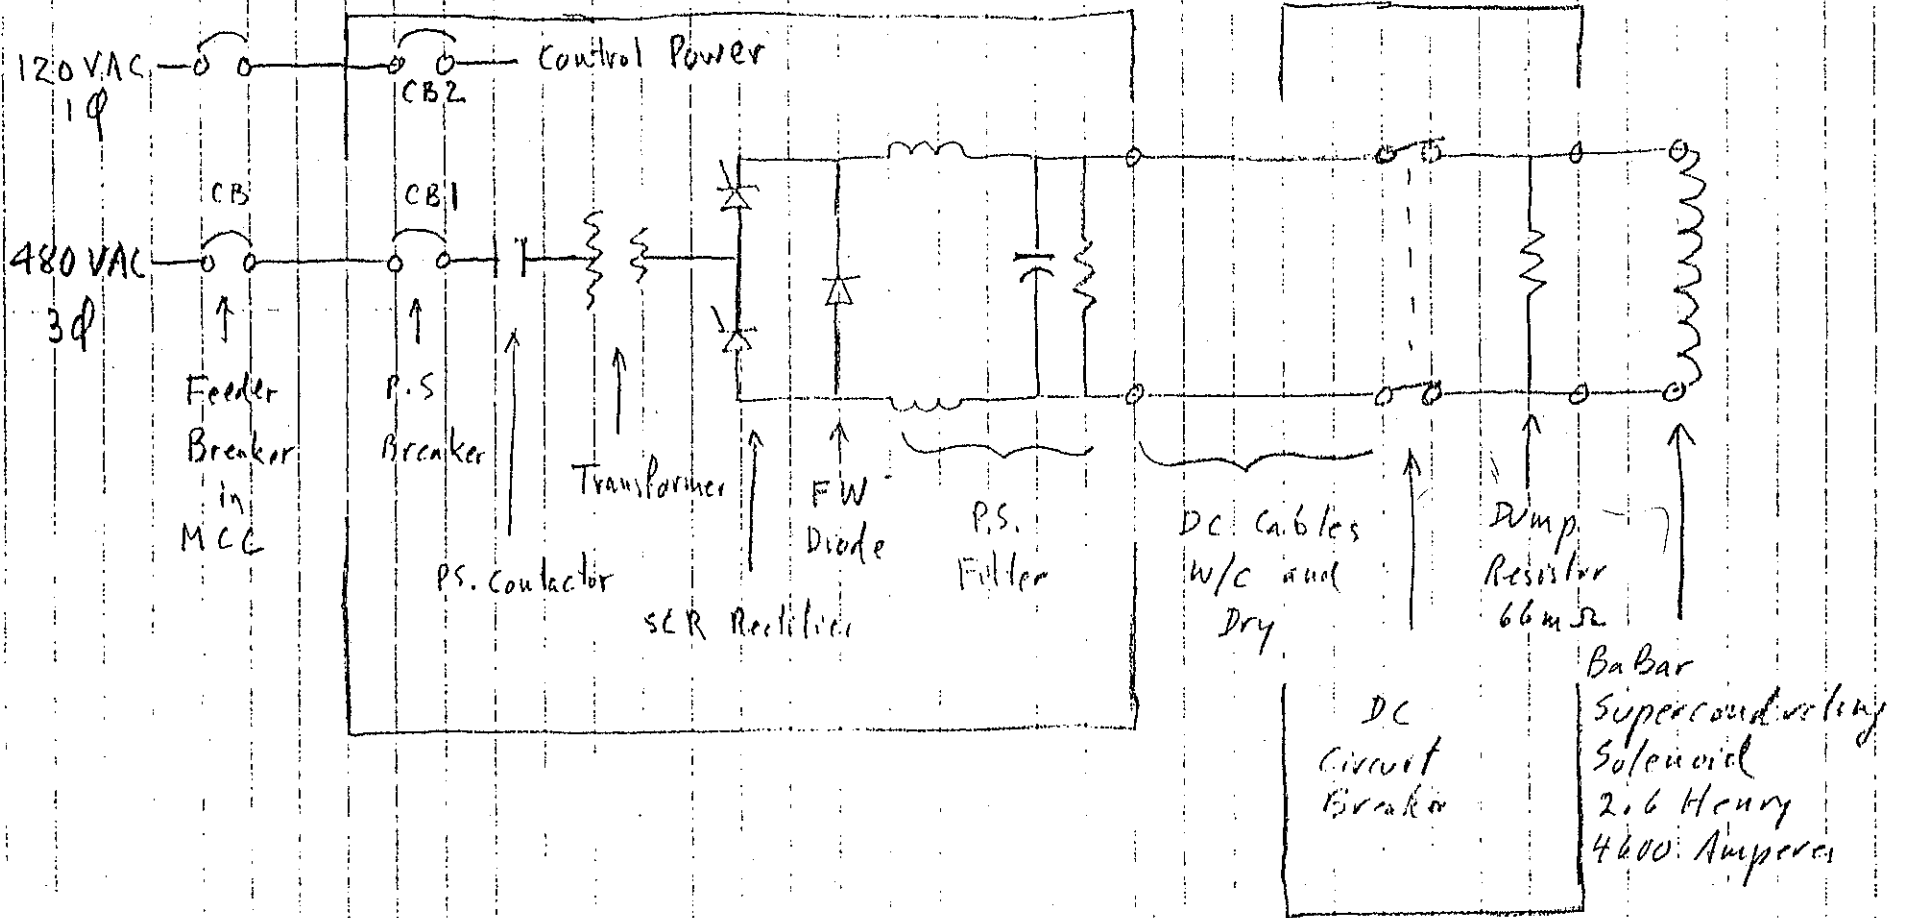 120 VAC
1φ
Control Power
CB2
CB
CB1
480 VAC
3φ
Feeder
Breaker
in
MCC
P.S
Breaker
P.S. Contactor
Transformer
SCR Rectifier
FW
Diode
P.S.
Filter
DC Cables
W/C and
Dry
DC
Circuit
Breaker
Dump
Resistor
66mΩ
BaBar
Superconducting
Solenoid
2.6 Henry
4600 Amperes